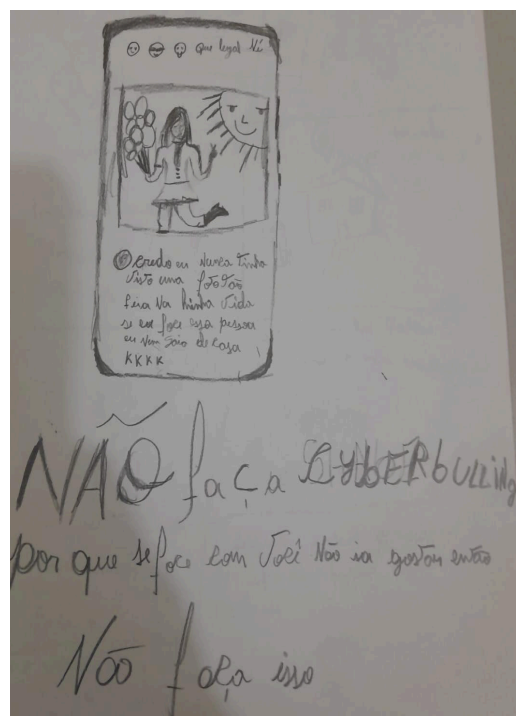 que legal Né
credo eu Nunca tinha
visto uma foto tão
feia Na minha vida
se eu foce essa pessoa
eu Nem Saio de casa
KKKK
NÃO faça CYbERbULLiNg
por que se foce com você Não ia gostar então
Não faça isso